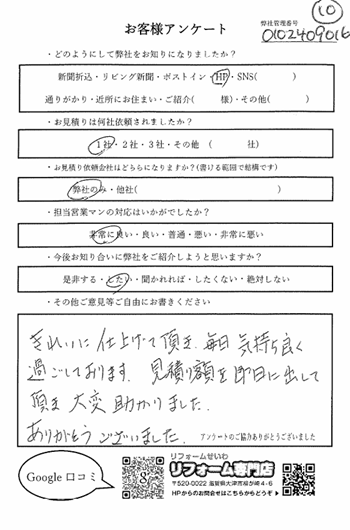 ⑩
お客様アンケート
弊社管理番号
0102409016
・どのようにして弊社をお知りになりましたか？
新聞折込・リビング新聞・ポストイン・HP・SNS(　　　)
通りがかり・近所にお住まい・ご紹介(　　　様)・その他(　　　)
・お見積りは何社依頼されましたか？
1社・2社・3社・その他　(　　　社)
・お見積り依頼会社はどちらになりますか？(書ける範囲で結構です)
弊社のみ・他社(　　　)
・担当営業マンの対応はいかがでしたか？
非常に良い・良い・普通・悪い・非常に悪い
・今後お知り合いに弊社をご紹介しようと思いますか？
是非する・したい・聞かれれば・したくない・絶対しない
・その他ご意見等ご自由にお書きください
きれいに仕上げて頂き、毎日 気持ち良く
過ごしております。見積り額を即日に出して
頂き 大変 助かりました。
ありがとうございました。
アンケートのご協力ありがとうございました
Google 口コミ
リフォームせいわ
リフォーム専門店
〒520-0022 滋賀県大津市柳が崎4-6
HPからのお問合せはこちらからどうぞ